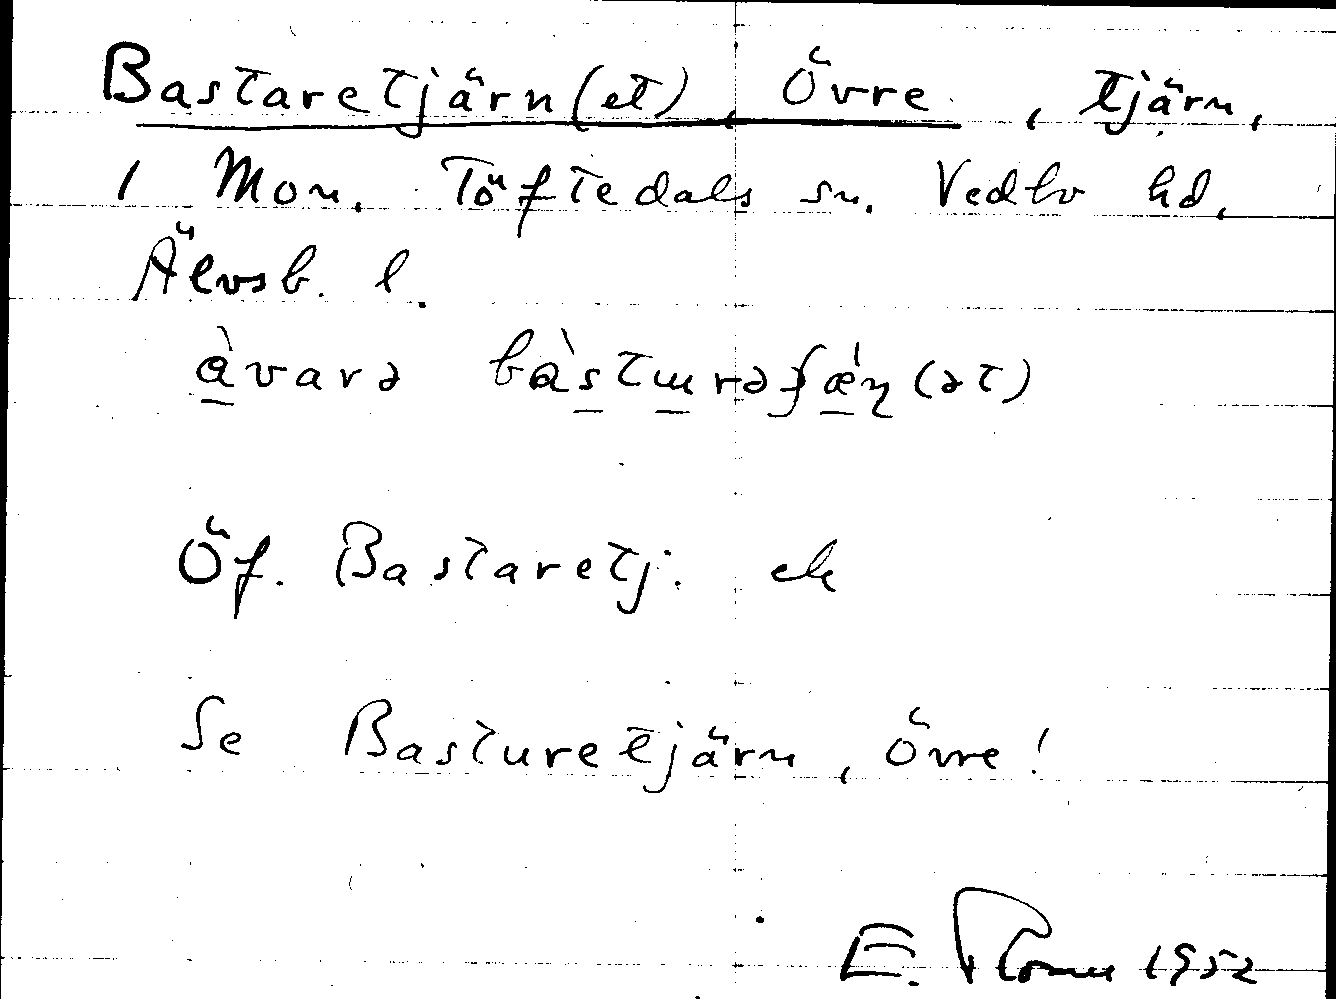 Bastaretjärn(et), Övre, tjärn,
1 Mon. Töftedals sn. Vedbo hd.
Älvsb. l.
àvarə bàstɯrəʃǽɳ(ət)
Öf. Bastaretj. ek
Se Basturetjärn, övre!
E. Florin 1952